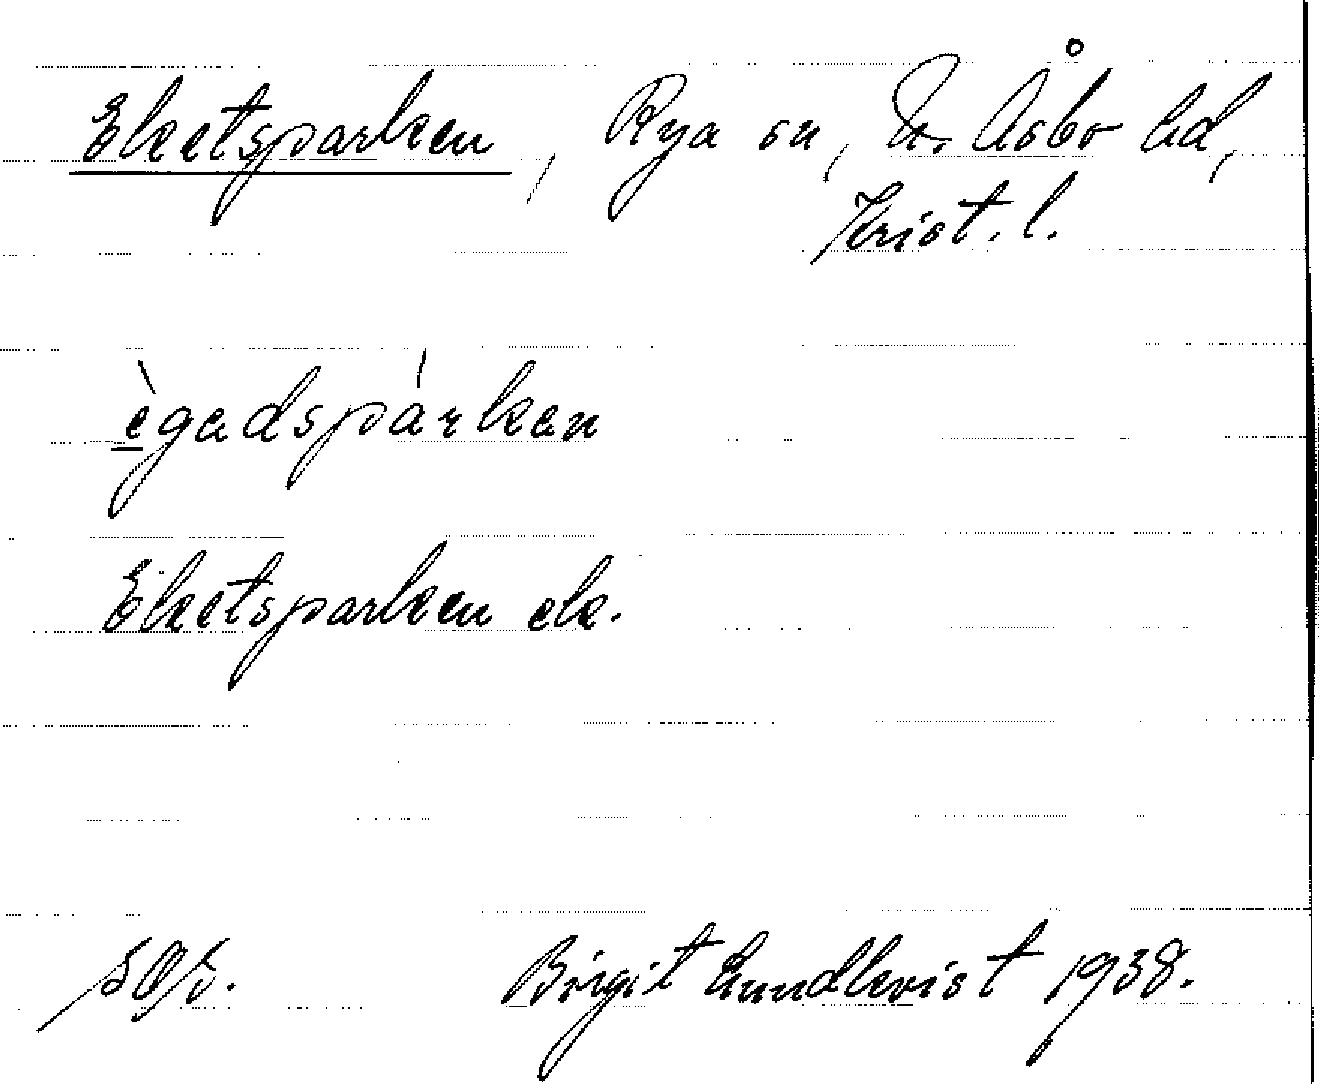 Eketsparken, Rya sn, N. Åsbo hd,
Krist. l.
ègadspárken
Eketsparken ek.
Birgit Lundkvist 1938.